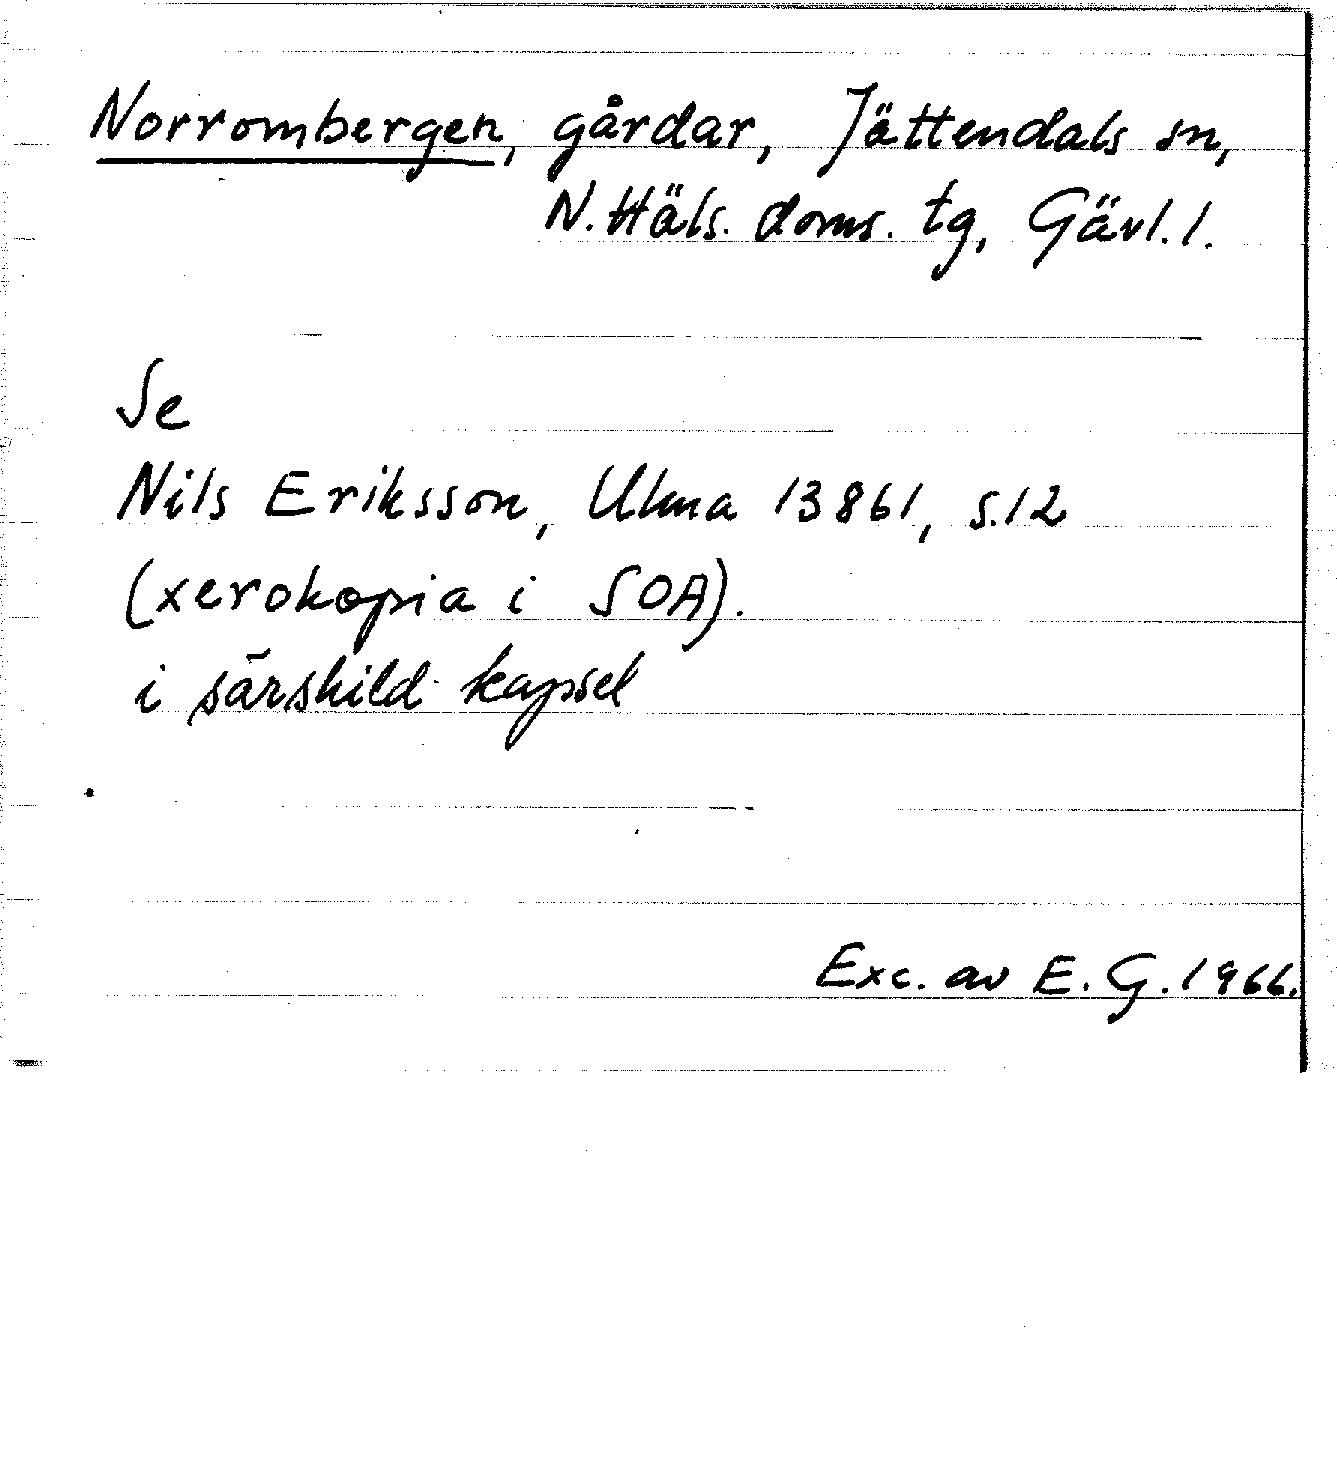 Norrombergen, gårdar, Jättendals sn,
N. Häls. doms. tg, Gävl. l.
Se
Nils Eriksson, Ulma 13861, s.12
(xerokopia i SOA).
i särskild kapsel
Exc. av E. G. 1966.